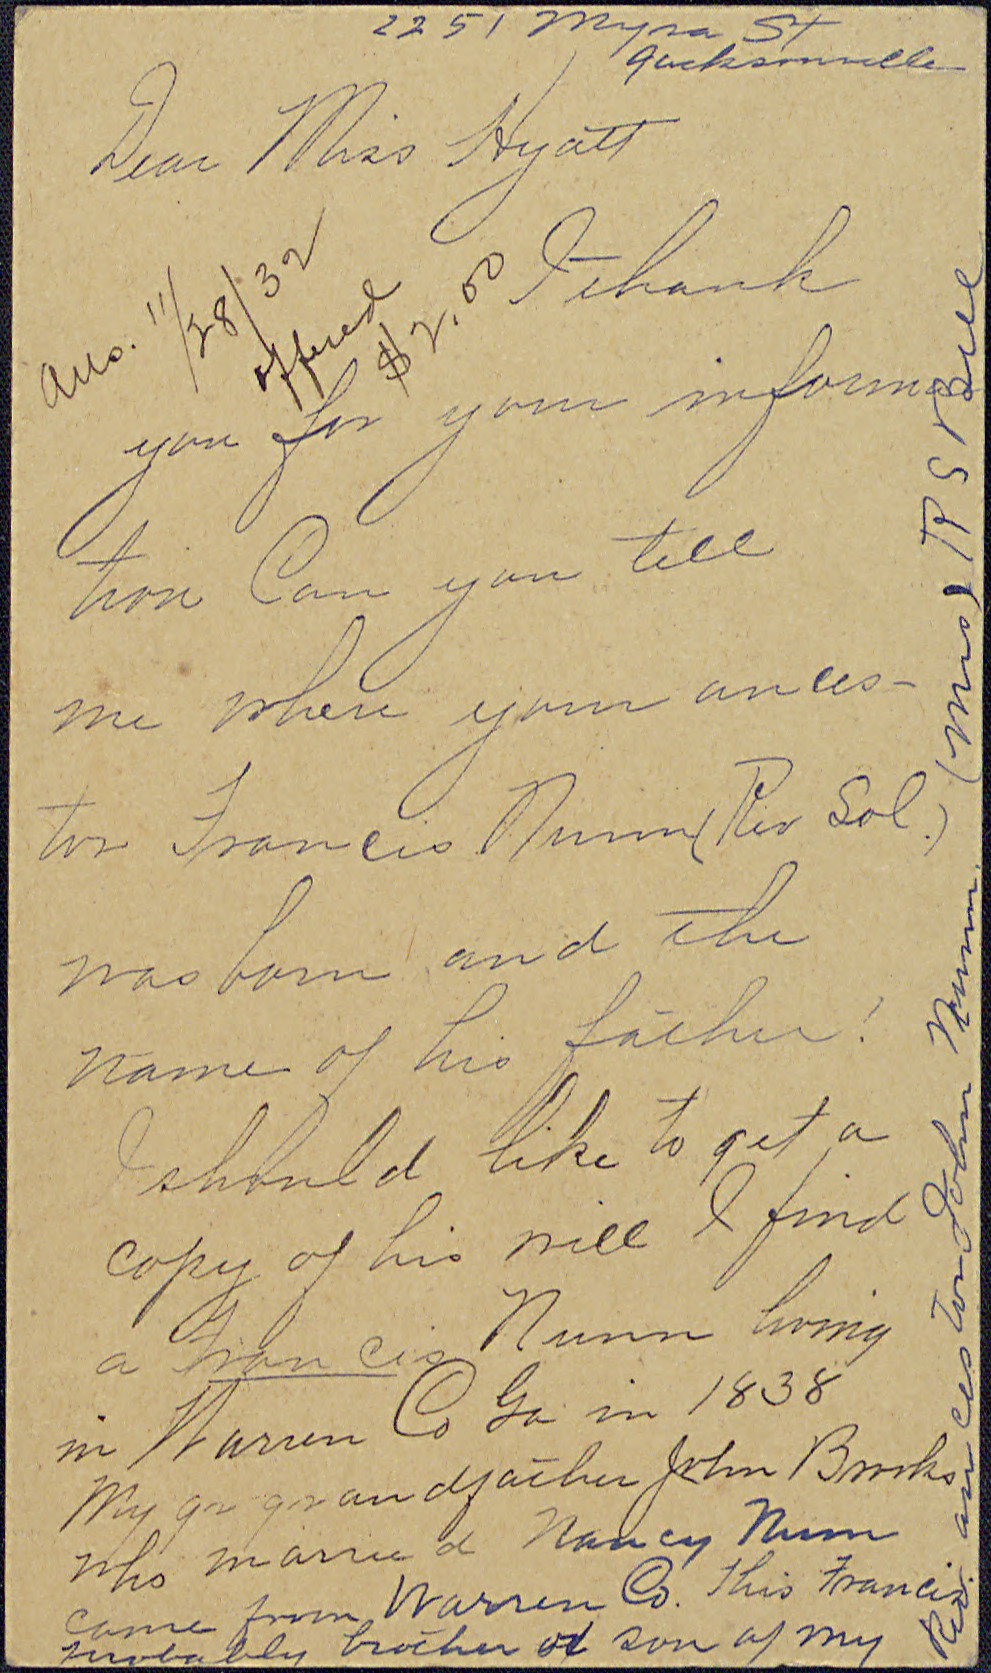 2251 Myra St
Jacksonville
Dear Miss Hyatt
Ans. 11/28/32
offered
$2.00
I thank
you for your informa
tion Can you tell
me where your ances-
tor Francis Nunn (Rev Sol.)
was born and the
name of his father?
I should like to get a
copy of his will I find
a Francis Nunn living
in Warren Co Ga in 1838
My gr grandfather John Brooks
who married Nancy Nunn
came from Warren Co. This Francis
probably brother or son of my
Rev. ancestor John Nunn. (Mrs) R S Bell